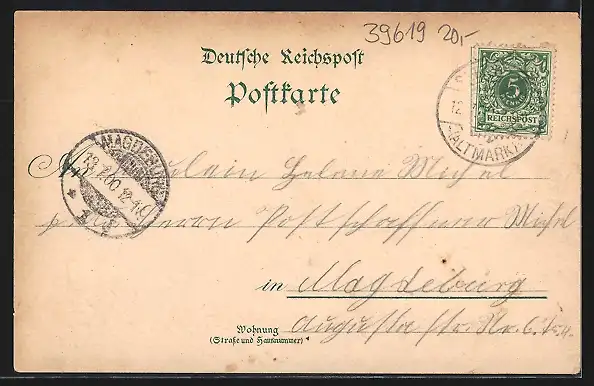 39619 20,-
Deutsche Reichspost
Postkarte
5
REICHSPOST
(ALTMARK)
MAGDEBURG
13 00 12-1N
An Fräulein Helene Michel
Herrn Postschaffner Michel
in Magdeburg
Wohnung
(Straße und Hausnummer)
Augustastr. Nr. 6.